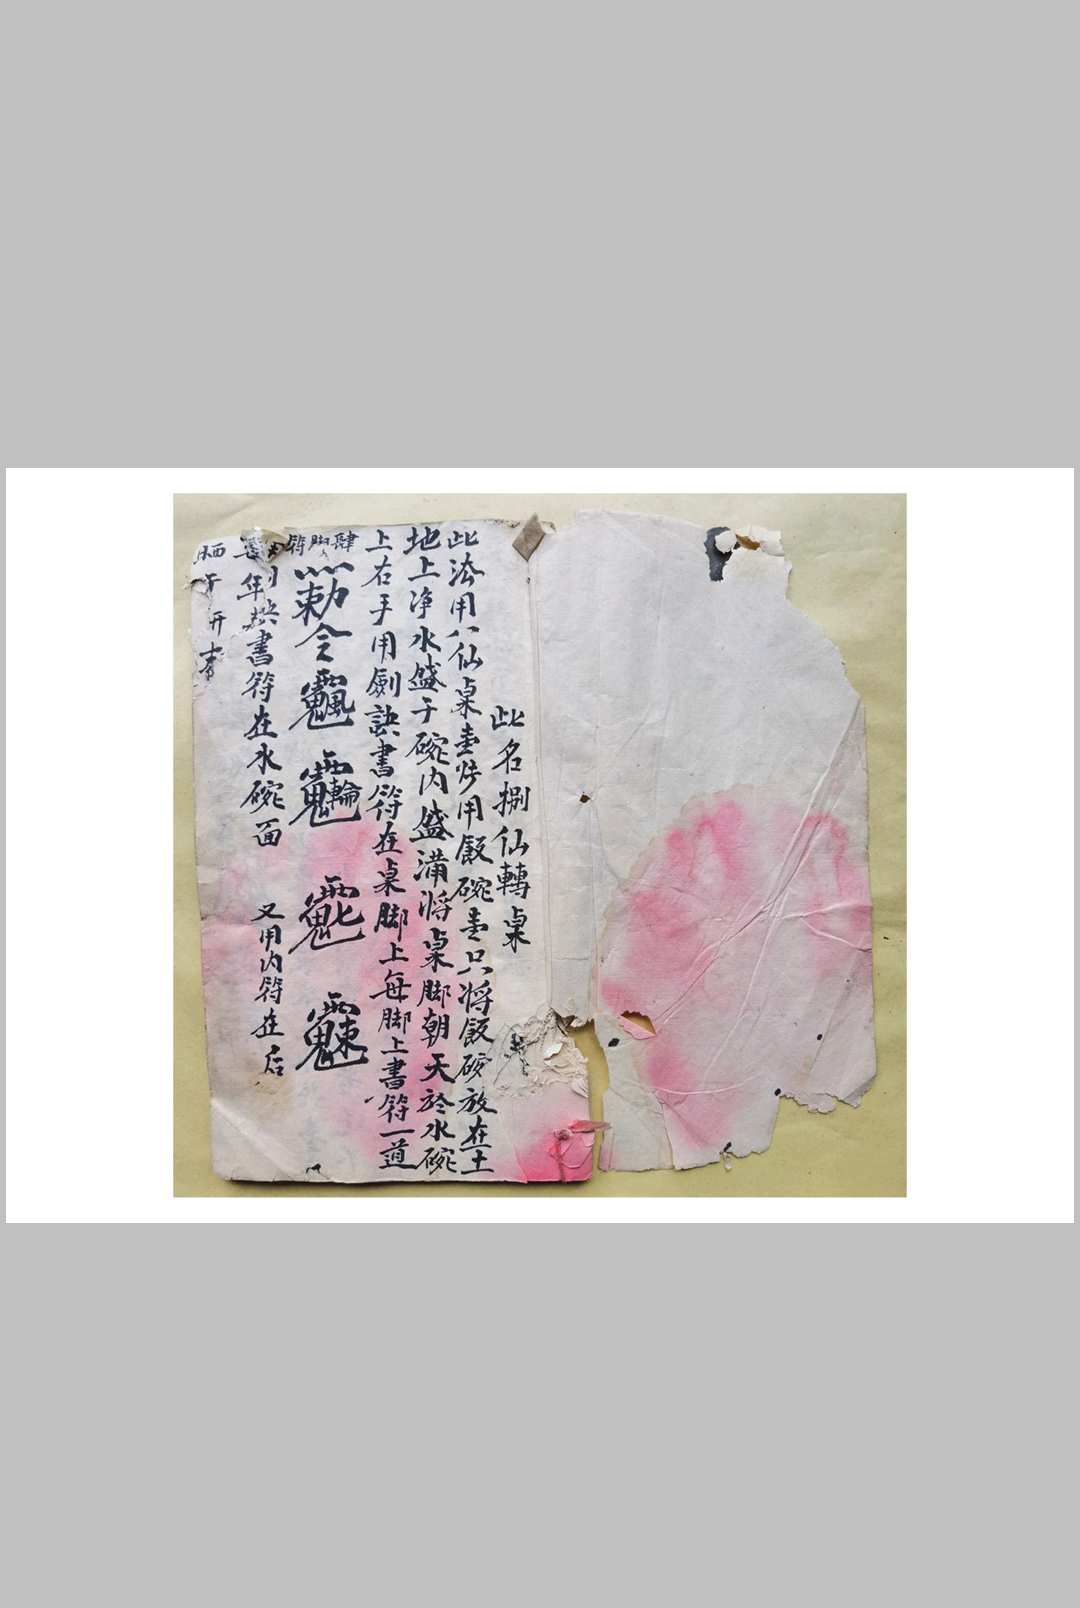 此名捌仙轉桌
此法用八仙桌壹張用飯碗壹只將飯碗放在土
地上净水盛于碗内盛满將桌脚朝天於水碗
上右手用劍訣書符在桌脚上每脚上書符一道
肆脚符
勅令
年 書符在水碗面 又用内符在后
开